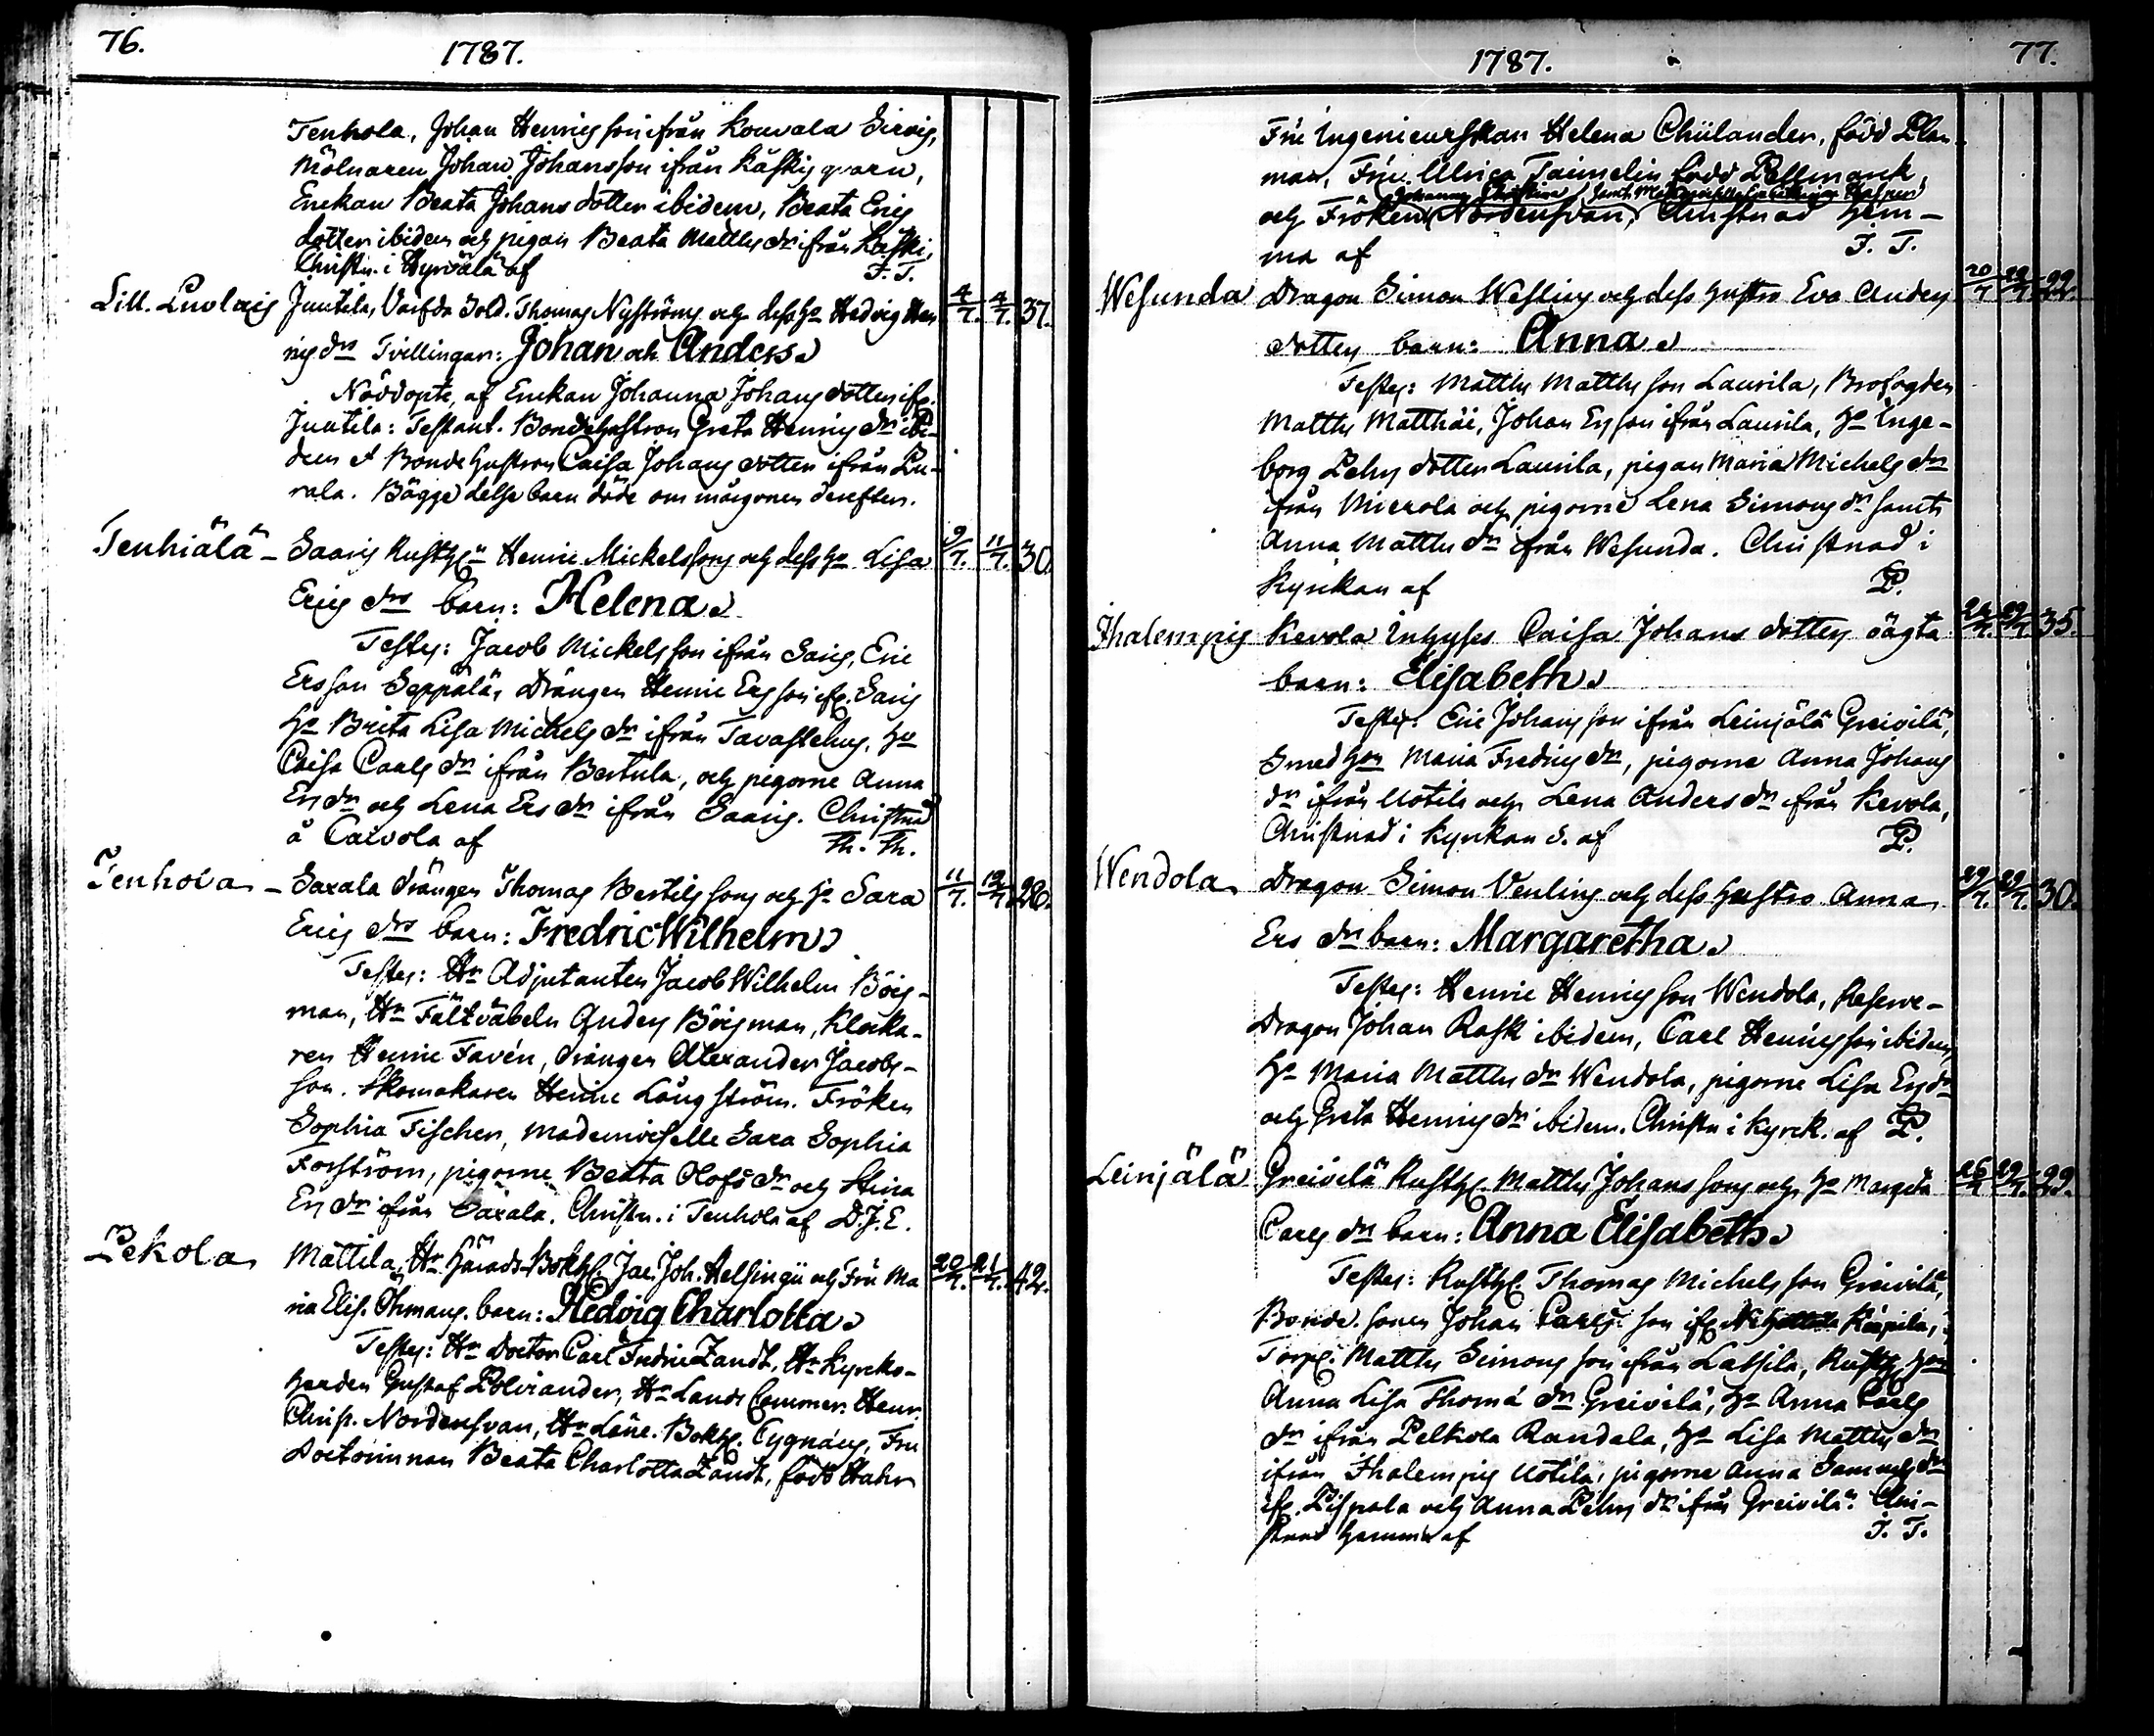 76.
1787.
Tenhola, Johan Henrics son ifrån Kouvala Sirvis,
Mölnaren Johan Johansson ifrån Kaskis qvarn,
Enckan Beata Johans dotter ibidem, Beata Erics
dotter ibidem och pigan Beata Matths dr ifrån Kaski,
Christn. i Hyrvälä af J. T.
Lill. Luolais Juutila, Varfda Sold. Thomas Nyströms och dess ho Hedvig Hen 4/7. 4/7. 37.
rics drs Tvillingar: Johan och Anders
Nöddopte, af Enckan Johanna Johans dotter ifr.
Juutila: Testant. Bonde hustron Greta Henrics dr ibi-
dem et Bonde hustron Caisa Johans dotter ifrån Pu-
rala. Bägge desse barn döde om morgonen derefter.
Tenhiälä - Saaris Rusth:n Henric Mickelssons och dess ho Lisa 9/7. 11/7. 30.
Erics drs barn: Helena
Testes: Jacob Mickelsson ifrån Saris, Eric
Ersson Seppälä, Drängen Henric Ersson ifr. Saris
ho Brita Lisa Michels dr ifrån Tavastehus, ho
Caisa Carls dr ifrån Bertula, och pigorne Anna
Ers dr och Lena Ers dr ifrån Saaris. Christnad
å Calvola af Th. Th.
Tenhola - Saxala drängen Thomas Bertils sons och ho Sara 11/7. 12/7. 26.
Erics drs barn: Fredric Wilhelm
Testes: Hr Adjutanten Jacob Wilhelm Börg-
man, Hr Fältväbeln Anders Börgman, Klocka-
ren Henric Favén, drängen Alexander Jacobs-
son. Skomakaren Henric Långström. Fröken
Sophia Fischer, Mademoiselle Sara Sophia
Forström, pigorne Beata Olofs dr och Stina
Ers dr ifrån Saxala. Christn. i Tenhola af D.J.E.
Pekola Mattila, Hr Härads Bokh. Jac. Joh. Helsingii och Fru Ma 20/7. 21/7. 42.
ria Elis. Öhmans. barn: Hedvig Charlotta
Testes: Hr Doctor Carl Fredric Zandt, Hr Kyrcko-
herden Gustaf Polviander, Hr Lands Commer. Henr.
Christ. Nordensvan, Hr Läne. Bokh. Cygnæus, Fru
Doctorinnan Beata Charlotta Zandt, född Hahn
1787.
77.
Fru Ingenieurskan Helena Chiilander, född Plan-
man, Fru Ulrica Taunelin född Pellmarck,
Johanna Christina samt Mademoiselle
och Fröken Nordensvan, Christnad hem-
ma af J. T.
Wesunda Dragon Simon Weslings och dess hustro Eva Anders 20/7 22/7 22.
dotters barn: Anna
Testes: Matths Matthsson Laurila, Brofogden
Matths Matthäi, Johan Ersson ifrån Laurila, ho Inge-
borg Pehrs dotter Laurila, pigan Maria Michels dr
från Mierola och pigorne Lena Simons dr samt
Anna Matths dr ifrån Wesunda. Christnad i
Kyrckan af P.
Ihalempis Kevola Inhyses Caisa Johans dotters oägta 24/7. 29/7. 35.
barn: Elisabeth
Testes: Eric Johansson ifrån Leinjälä Greivilä,
Smed hon Maria Fredrics dr, pigorne Anna Johans
dr ifrån Uotila och Lena Anders dr ifrån Kevola,
Christnad i Kyrckan d. af P.
Wendola Dragon Simon Venlings och dess hustro Anna 29/7. 29/7. 30.
Ers drs barn: Margaretha
Testes: Henric Henricsson Wendola, Reserve-
Dragon Johan Rask ibidem, Carl Henricsson ibidem,
ho Maria Matths dr Wendola, pigorne Lisa Ers dr
och Greta Henrics dr ibidem. Christn i kyrck. af P.
Leinjälä Greivilä Rusth. Matths Johans sons och ho Margeta 26/7 29/7. 29.
Carls drs barn: Anna Elisabeth
Testes: Rusth. Thomas Michelsson Greivilä,
Bonde sonen Johan Carls son ifr. Räpila,
Torp. Matths Simons son ifrån Lassila, Rusth. hon
Anna Lisa Thomæ dr Greivilä, ho Anna Carls
dr ifrån Pelkola Randala, ho Lisa Matths dr
ifrån Ihalempis Uotila, pigorne Anna Samuels dr
ifr. Pispala och Anna Pehrs dr ifrån Greivilä. Chri-
stnad hemma af J. T.